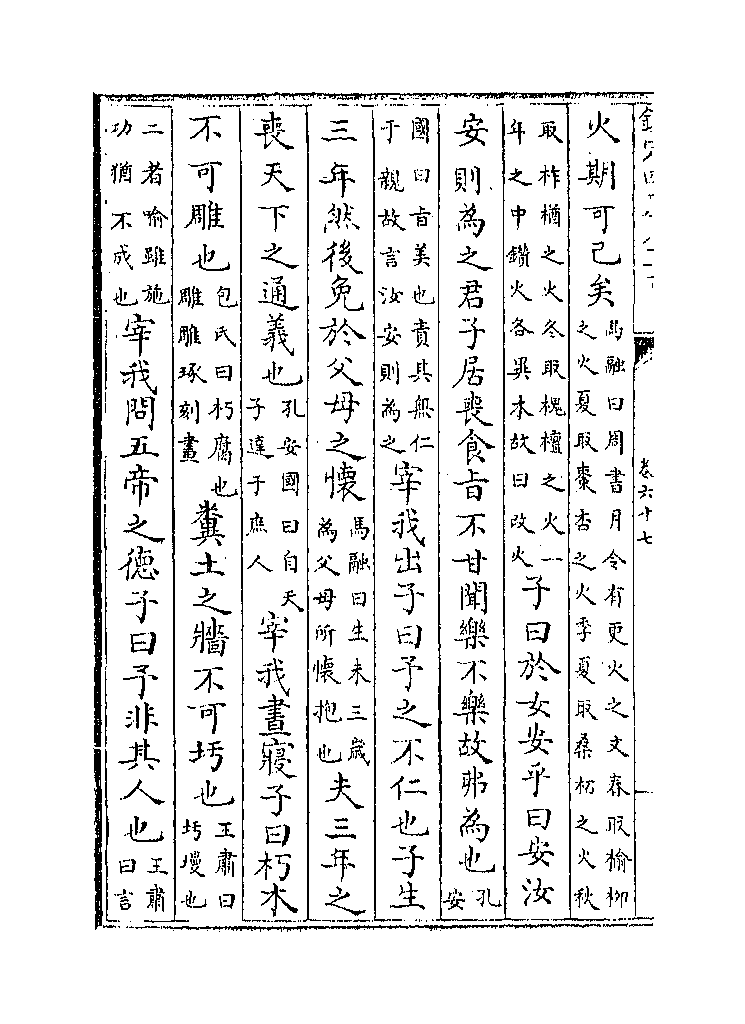 卷六十七
火期可已矣馬融曰周書月令有更火之文春取榆柳之火夏取棗杏之火季夏取桑柘之火秋
取柞楢之火冬取槐檀之火一年之中鑽火各異木故曰改火子曰於女安乎曰安汝
安則為之君子居喪食旨不甘聞樂不樂故弗為也孔安
國曰旨美也責其無仁于親故言汝安則為之宰我出子曰予之不仁也子生
三年然後免於父母之懷馬融曰生未三歲為父母所懷抱也夫三年之
喪天下之通義也孔安國曰自天子達于庶人宰我晝寢子曰朽木
不可雕也包氏曰朽腐也雕雕琢刻畫糞土之牆不可圬也王肅曰圬墁也
二者喻雖施功猶不成也宰我問五帝之德子曰予非其人也王肅曰言